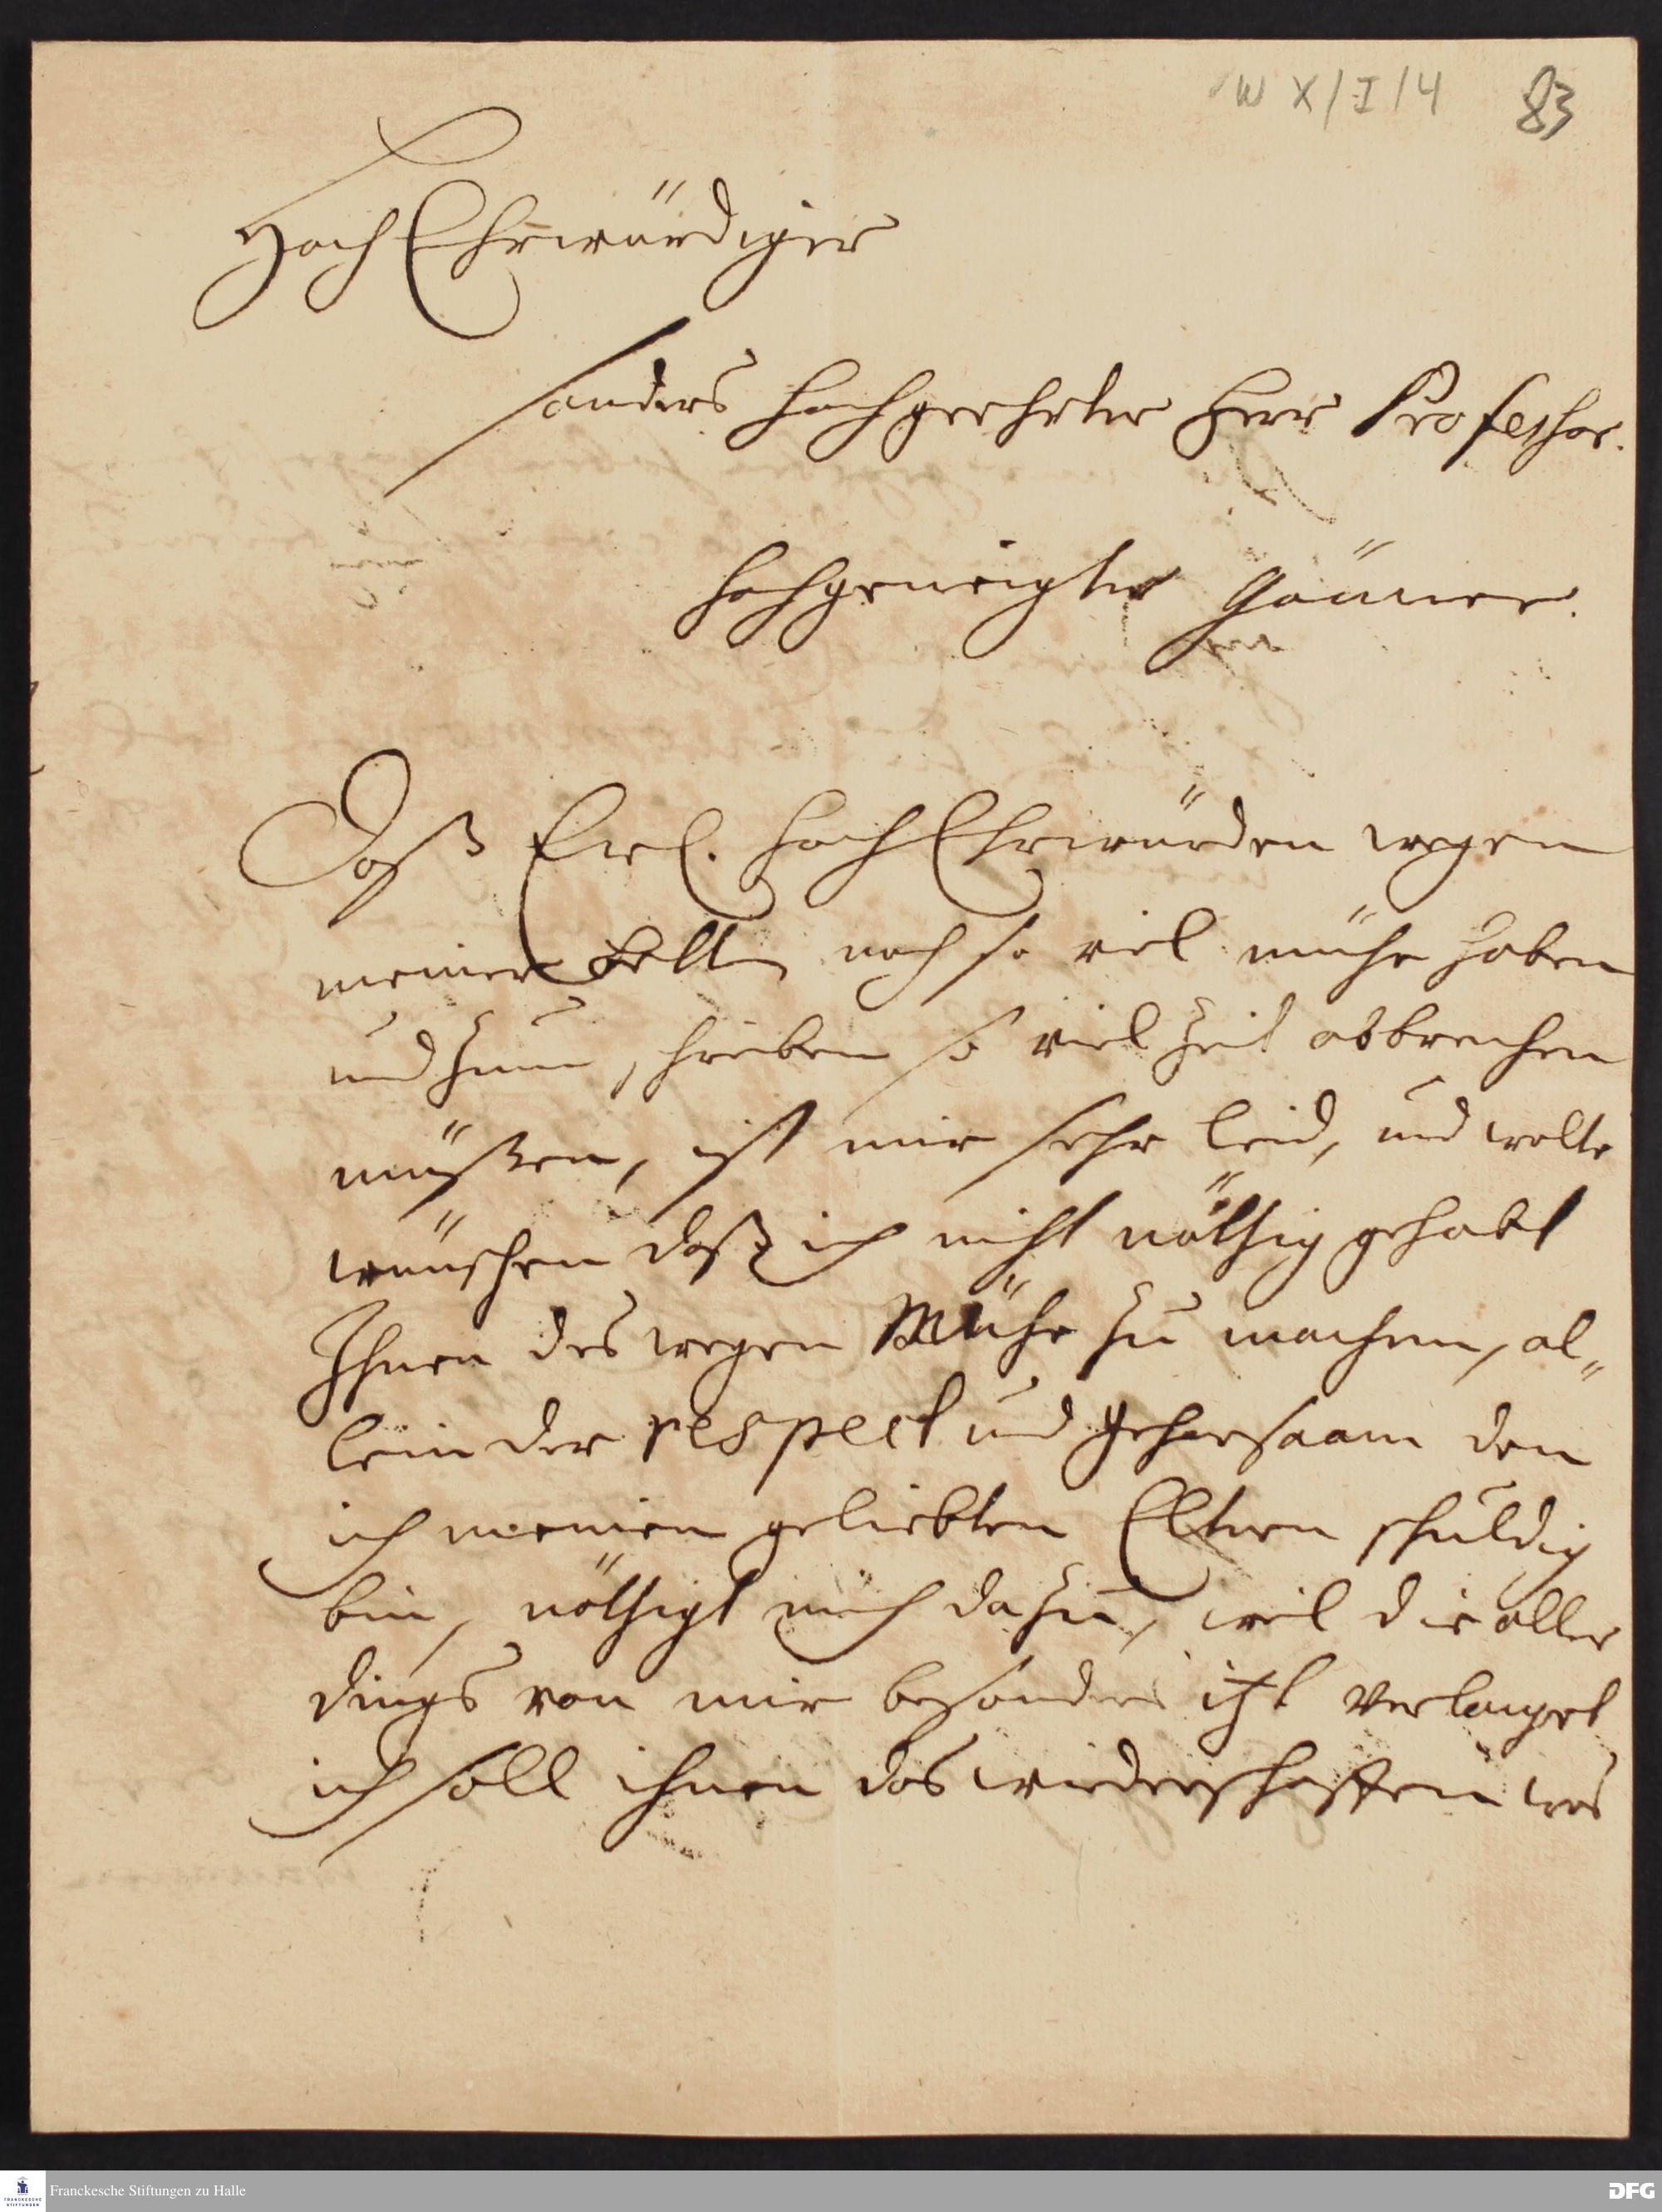 W X/I/4 83
HochEhrwürdiger
sonders hochgeehrter Herr Professor.
hochgeneigter Gönner.
Daß Ewl. HochEhrwürden wegen
meiner noch so viel mühe haben
und zum schreiben so viel Zeit abbrechen
müßen, ist mir sehr leid, und wolte
wünschen daß ich nicht nöthig gehabt
Ihnen deswegen Mühe zu machen, al„
lein der respect und gehorsaam den
ich meinen geliebten Eltern schuldig
bin, nöthigt mich dazu, weil die aller
dings von mir besonders itzt verlanget
ich soll ihnen das wiederschaffen was
FRANCKESCHE STIFTUNGEN
Franckesche Stiftungen zu Halle
DFG